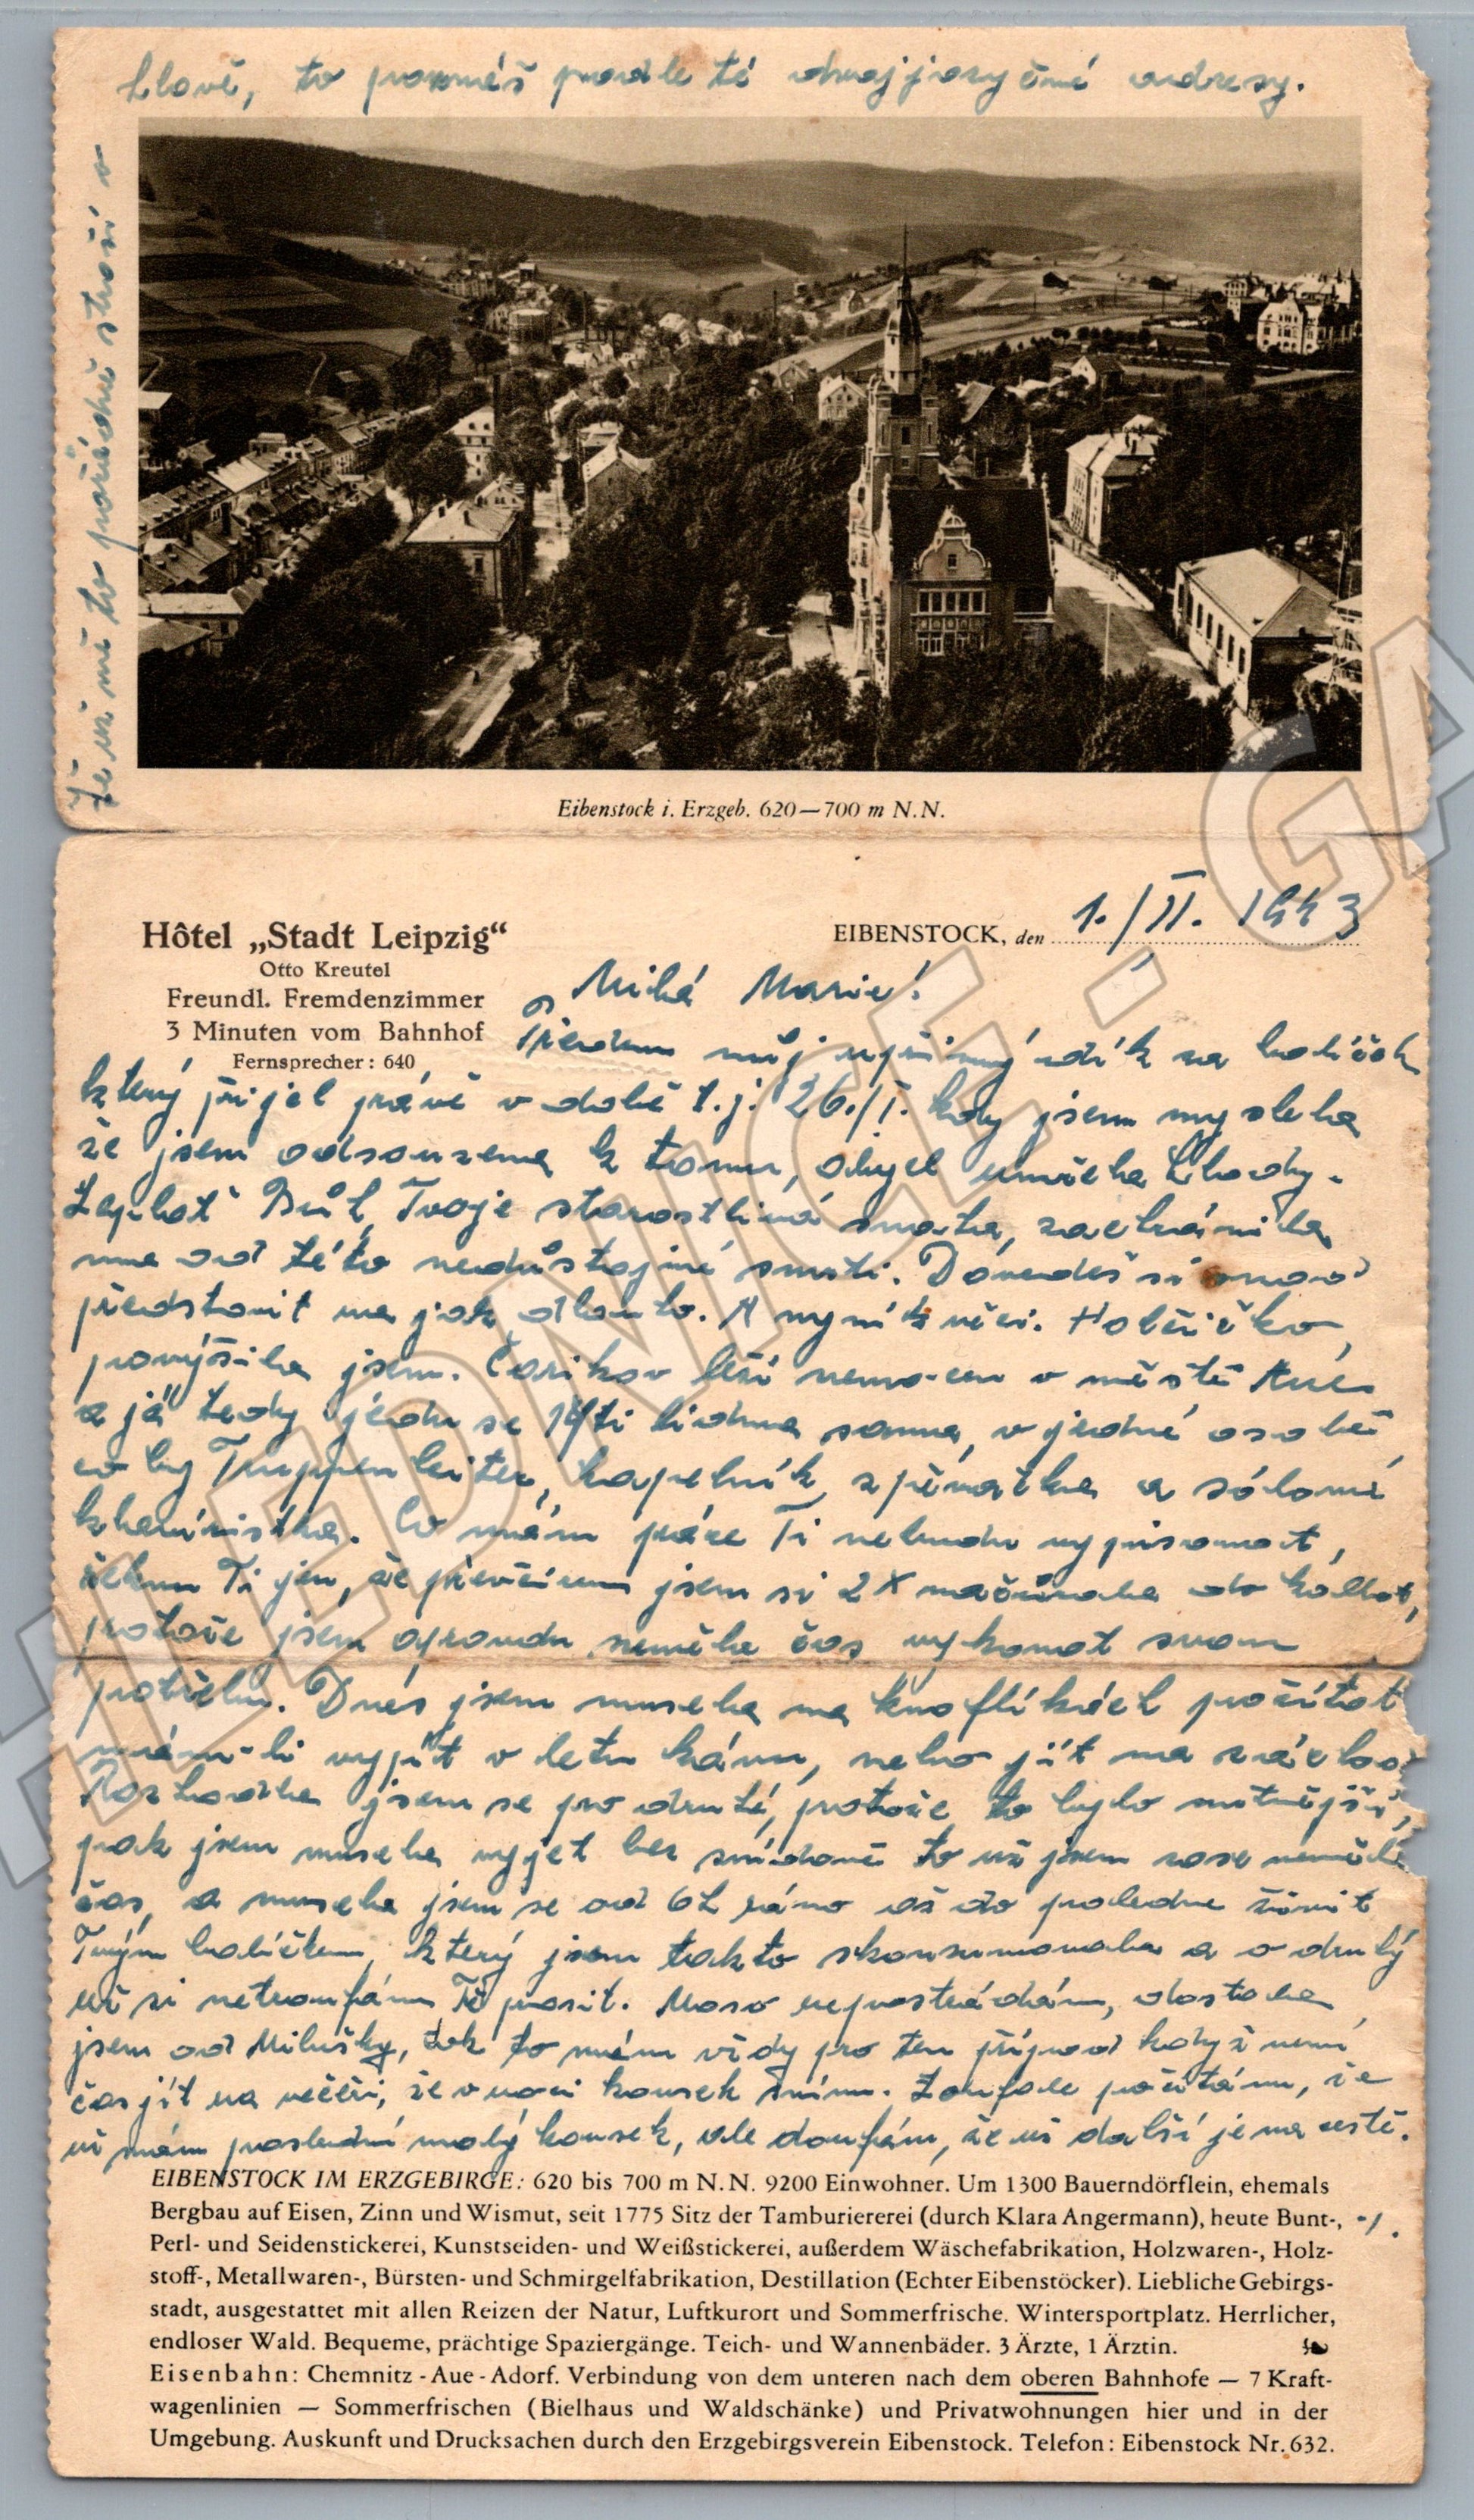 hlavě, to poznáš podle té dvojjazyčné adresy.
Že už mě to pořádně straší v
Eibenstock i. Erzgeb. 620—700 m N.N.
Hôtel „Stadt Leipzig“
Otto Kreutel
Freundl. Fremdenzimmer
3 Minuten vom Bahnhof
Fernsprecher: 640
EIBENSTOCK, den 1./II. 1943
Milá Marie!
Předem můj upřímný dík za balíček
který přijel právě v době t.j. 26./I. kdy jsem myslela
že jsem odsouzena k tomu, abych umřela hlady.
Zaplať Bůh, Tvoje starostlivá snaha, zachránila
mne od této nedůstojné smrti. Dovedeš si snad
představit na jak dlouho. A nyní k věci. Holčičko,
povýšila jsem. Čarikov leží nemocen v městě Aue,
a já tedy jedu se 14ti lidma sama, v jedné osobě
co by Truppenleiter, kapelník, zpěvačka a sólová
klavíristka. Co mám práce Ti nebudu vypisovat,
řeknu Ti jen, že předčírem jsem si 2x načůrala do kalhot,
protože jsem opravdu neměla čas vykonat svou
potřebu. Dnes jsem musela na knoflíkách počítat
mám-li vypít v letu kávu, nebo jít na záchod
Rozhodla jsem se pro druhé, protože to bylo nutnější,
pak jsem musela vyjet bez snídaně to už jsem zase neměla
čas, a musela jsem se od 6h ráno až do poledne živit
Tvým balíčkem, který jsem takto skonsumovala a o druhý
už si netroufám Tě prosit. Maso nepostrádám, dostala
jsem od Milušky, tak to mám vždy pro ten případ když není
čas jít na večeři, že v noci kousek sním. Zoufale počítám, že
už mám poslední malý kousek, ale doufám, že už další je na cestě.
-/.
EIBENSTOCK IM ERZGEBIRGE: 620 bis 700 m N.N. 9200 Einwohner. Um 1300 Bauerndörflein, ehemals
Bergbau auf Eisen, Zinn und Wismut, seit 1775 Sitz der Tamburiererei (durch Klara Angermann), heute Bunt-,
Perl- und Seidenstickerei, Kunstseiden- und Weißstickerei, außerdem Wäschefabrikation, Holzwaren-, Holz-
stoff-, Metallwaren-, Bürsten- und Schmirgelfabrikation, Destillation (Echter Eibenstöcker). Liebliche Gebirgs-
stadt, ausgestattet mit allen Reizen der Natur, Luftkurort und Sommerfrische. Wintersportplatz. Herrlicher,
endloser Wald. Bequeme, prächtige Spaziergänge. Teich- und Wannenbäder. 3 Ärzte, 1 Ärztin.
Eisenbahn: Chemnitz - Aue - Adorf. Verbindung von dem unteren nach dem oberen Bahnhofe — 7 Kraft-
wagenlinien — Sommerfrischen (Bielhaus und Waldschänke) und Privatwohnungen hier und in der
Umgebung. Auskunft und Drucksachen durch den Erzgebirgsverein Eibenstock. Telefon: Eibenstock Nr. 632.